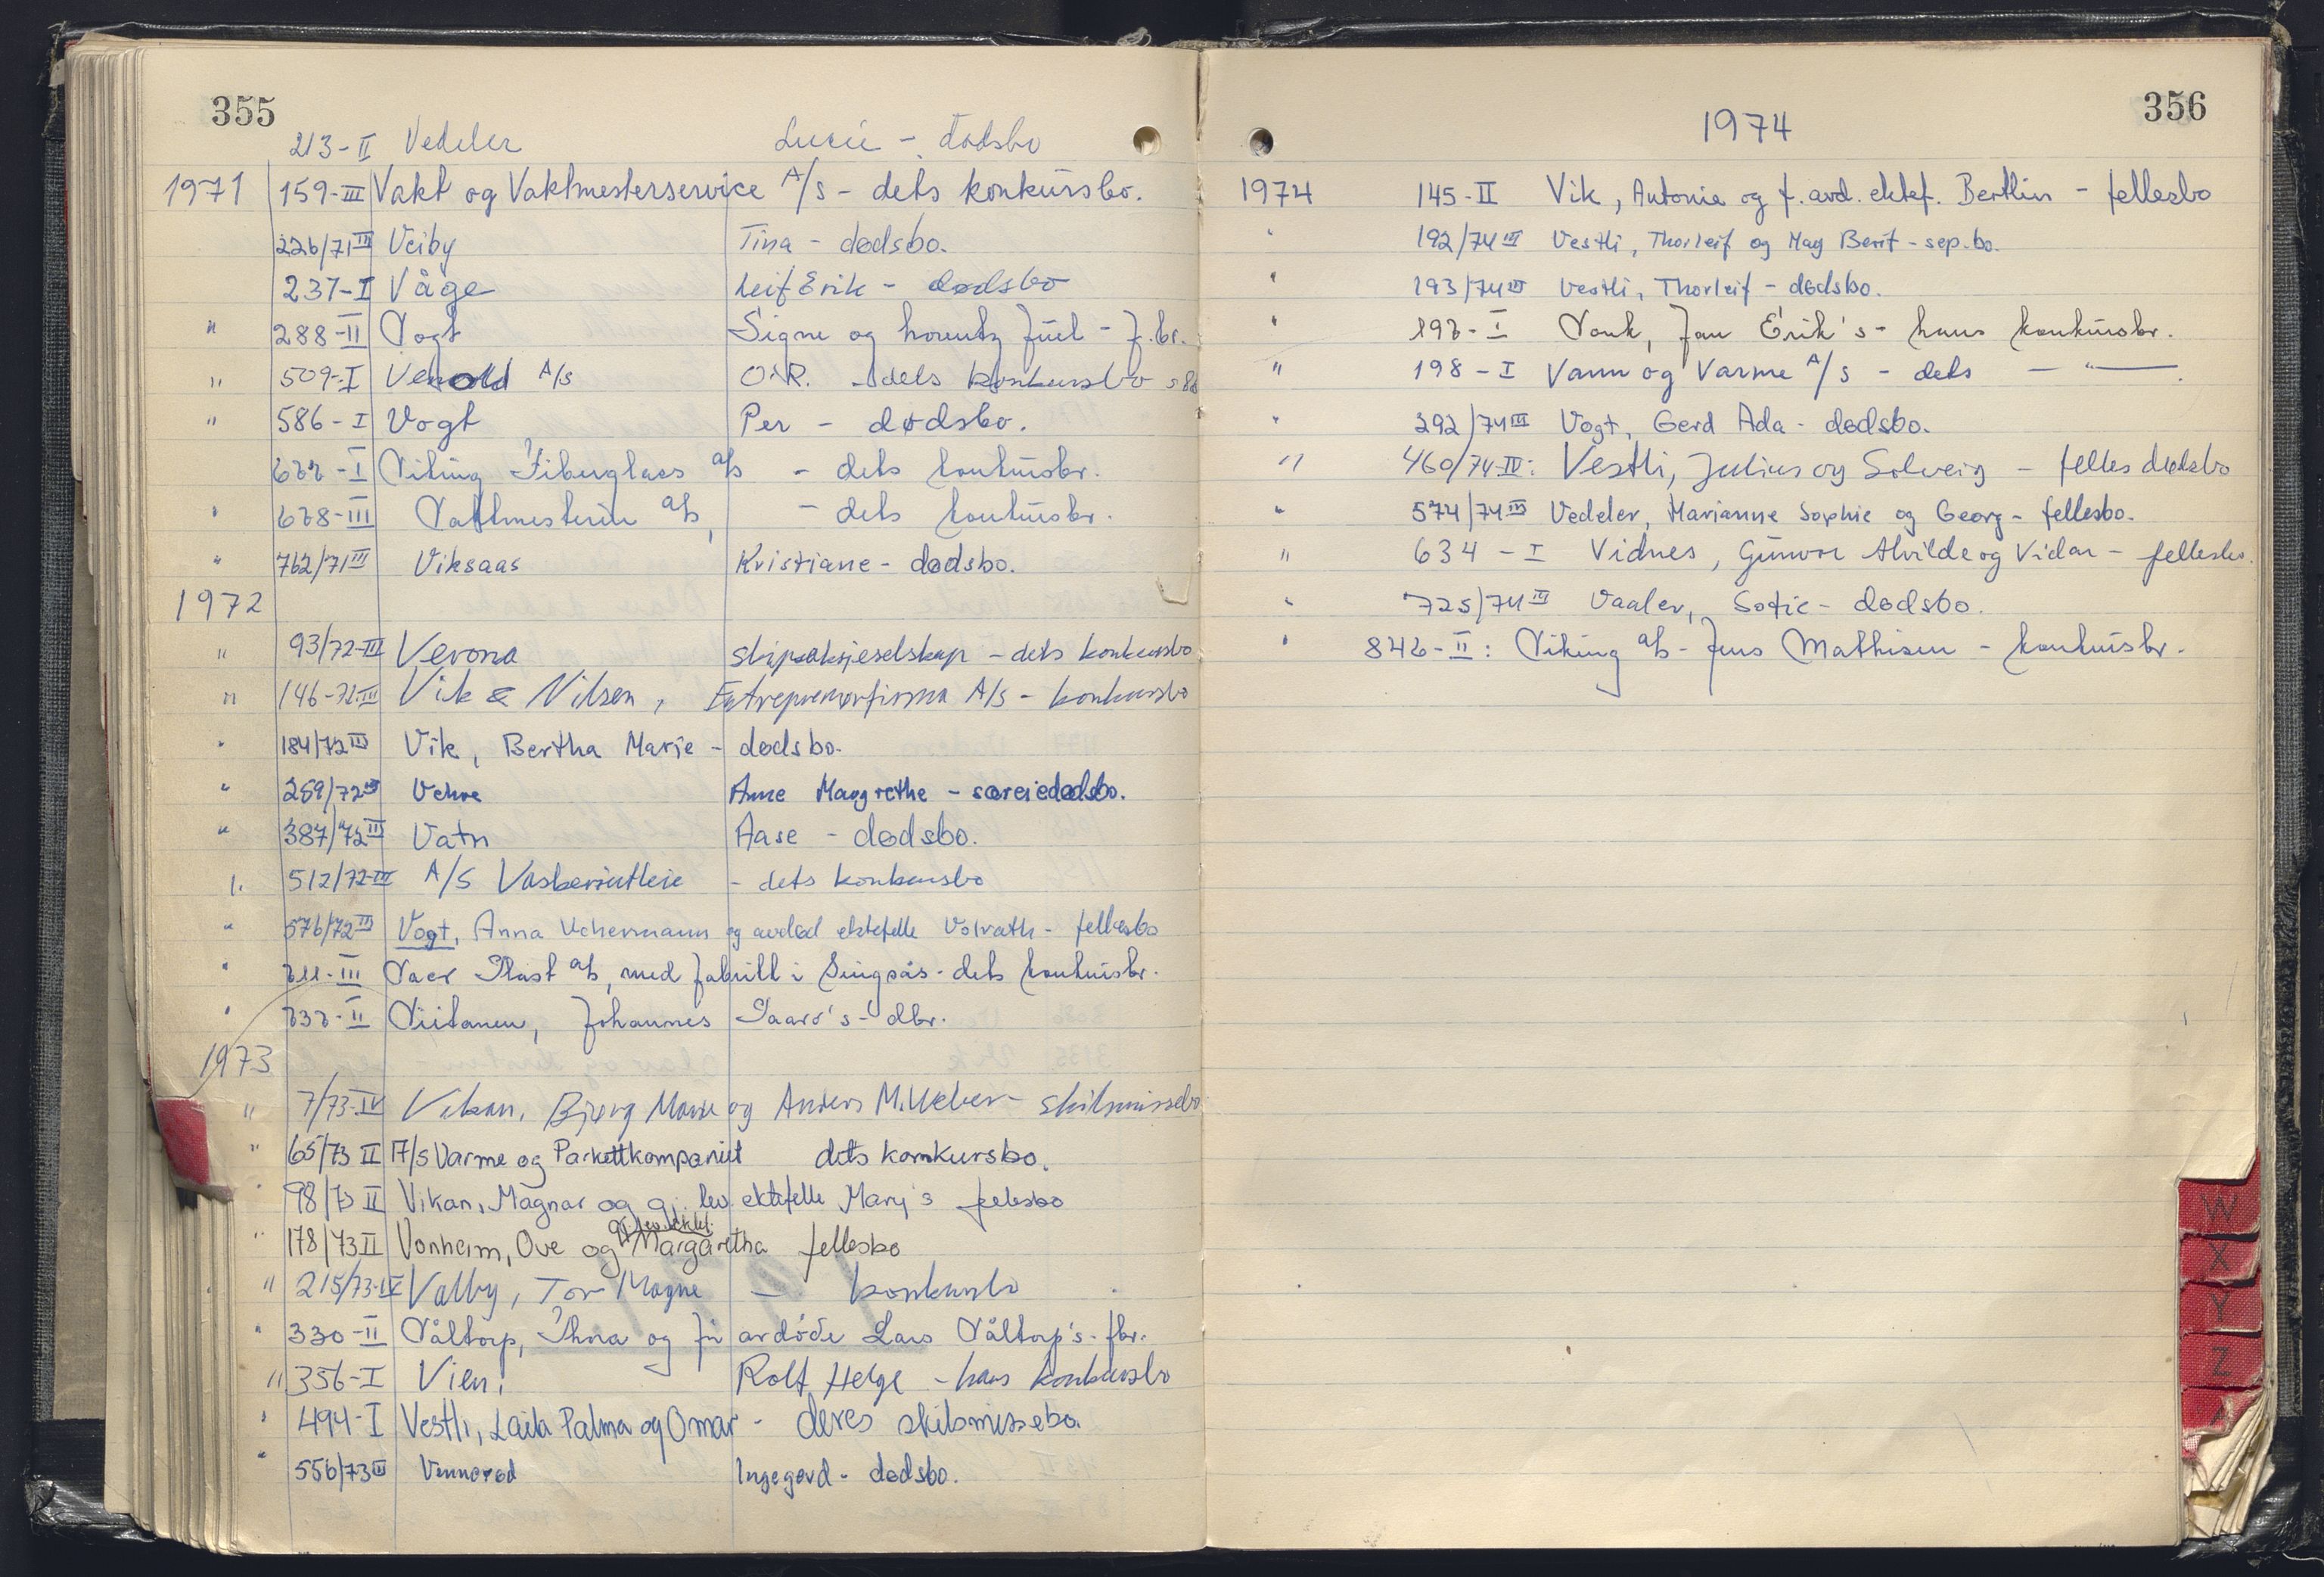 355
213-II Vedeler Lucie - dødsbo
1971 159-III Vakt og Vaktmesterservice A/S - dets konkursbo.
226/71 III Veiby Tina - dødsbo.
237-I Våge Leif Erik - dødsbo
" 288-II Vogt Signe og Lorentz Juel - f.br.
" 509-I A/S O.R. - dets konkursbo
" 586-I Vogt Per - dødsbo.
Viking Fiberglass a/s - dets konkursbr.
" 628-III Vaktmesteren a/s, - dets konkursbr.
" 762/71 III Viksaas Kristiane - dødsbo.
1972
" 93/72-III Verona skipsaksjeselskap - dets konkursbo
" 146-72-III Vik & Nilsen, Entreprenørfirma A/S - konkursbo
" 184/72 III Vik, Bertha Marie - dødsbo.
" 259/72 III Anne Margrethe - særeiedødsbo.
" 387/72 III Vatn Aase - dødsbo.
" 512/72-III A/S Vaskeriutleie - dets konkursbo
" 576/72 III Vogt, Anna Uchermann og avdød ektefelle Volrath - fellesbo
" Plast a/s, med fabrikk i Singsås - dets konkursbr.
" Viitanen, Johannes - dbr.
1973
" 7/73-IV Vikan, Bjørg Marie og Anders M. - skilsmissebo
" 65/73 II A/S Varme og Parkettkompaniet dets konkursbo.
" 98/73 II Vikan, Magnar og gj. lev. ektefelle Mary's fellesbo
gj. lev. ektef.
" 178/73 II Vonheim, Ove og Margaretha fellesbo
" 215/73-IV Valby, Tor Magne - konkursbo
" 330-II Våltorp, Thora og før avdøde Lars Våltorp's - fbr.
" 356-I Vien, Rolf Helge - hans konkursbo
" 494-I Vestli, Laila Palma og Omar - deres skilsmissebo
" 556/73 III Vennerød Ingegerd - dødsbo.
356
1974
1974 145-II Vik, Antonie og f. avd. ektef. Bertlin - fellesbo
" 192/74 III Vestli, Thorleif og Mag Berit - sep.bo.
" 193/74 III Vestli, Thorleif - dødsbo.
" Jan Erik's - hans konkursbr.
" 198-I Vann og Varme A/S - dets — " —
" 292/74 III Vogt, Gerd Ada - dødsbo.
" 460/74-IV: Vestli, Julius og Solveig - felles dødsbo
" 574/74 III Vedeler, Marianne Sophie og Georg - fellesbo.
" 634-I Vidnes, Gunvor Alvilde og Vidar - fellesbo.
" 725/74 III Vaaler, Sofie - dødsbo.
" 846-II: Viking a/s - Jens Mathisen - konkursbr.
W
X
Y
Z